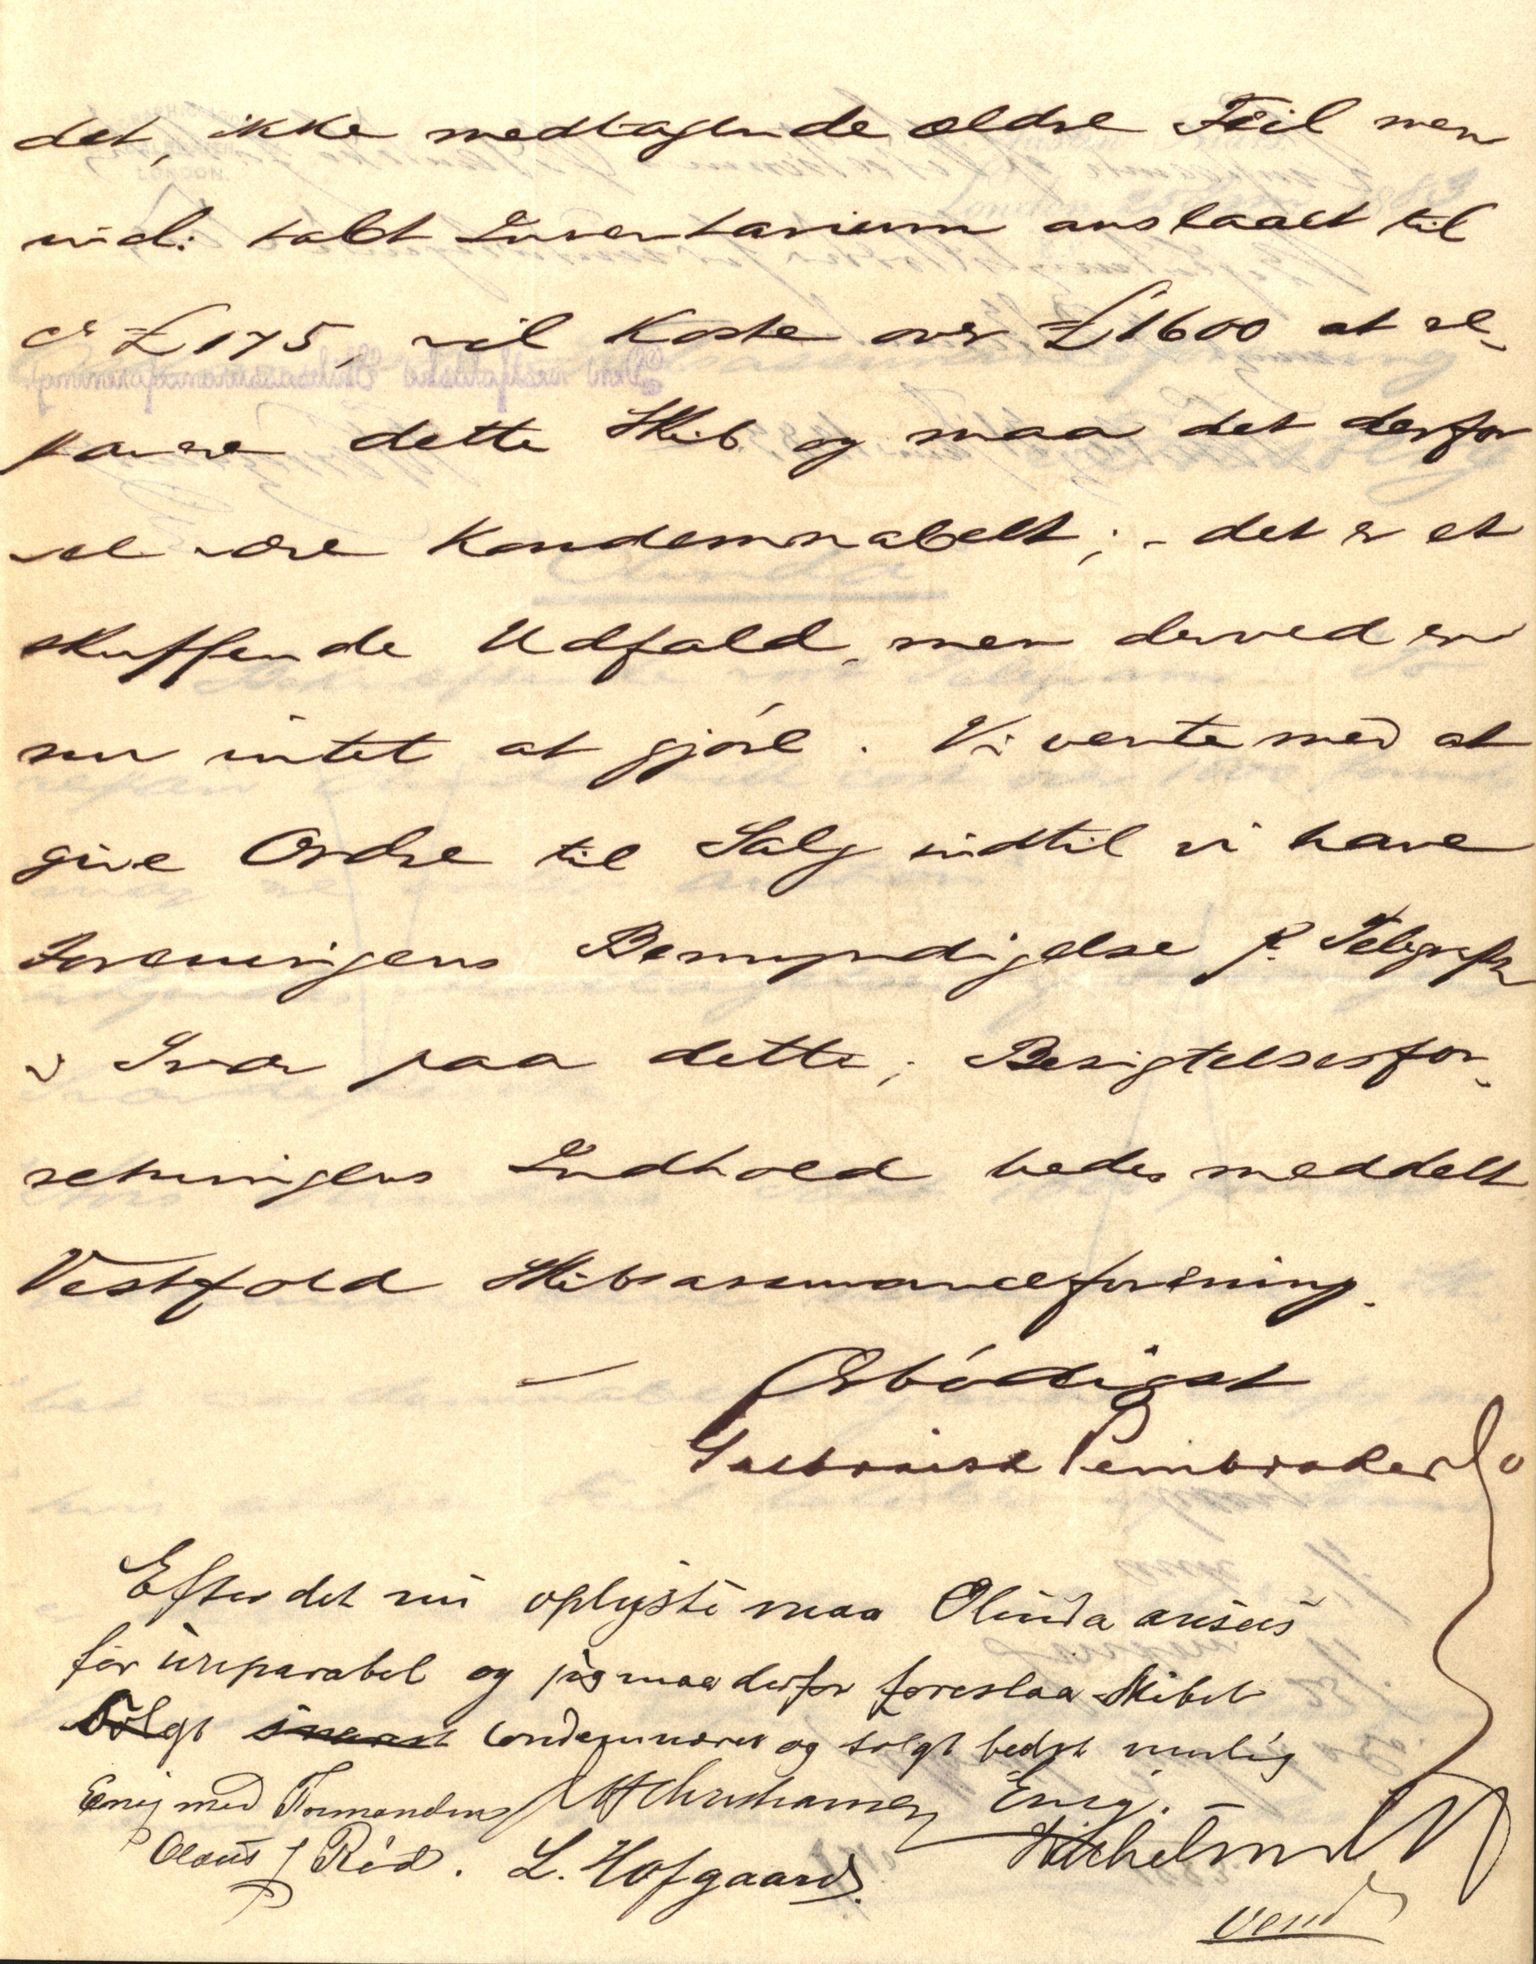 det, ikke medtagende ældre Feil men
incl: tabt Inventarium anslaaet til
ca £175, vil koste over £1600 at re-
parere dette Skib og maa det derfor
vel være Kondemnabelt; - det er et
skuffende Udfald, men derved er
nu intet at gjøre. Vi vente med at
give Ordre til Salg indtil vi have
Foreningens Bemyndigelse p. Telegraph
i Svar paa dette; Besigtelsesfor-
retningens Indhold bedes meddelt
Vestfold Skibsassuranceforening.
Ærbødigst
Galbraith Pembroke & Co
Efter det nu oplyste maa Olinda ansees
for irreparabel og jeg maa derfor foreslaa Skibet
solgt snarest condemneret og solgt bedst mulig
Enig med Formanden Christiansen Enig.
Olaus Rød. L. Hofgaard. Wilhelmsen
vend